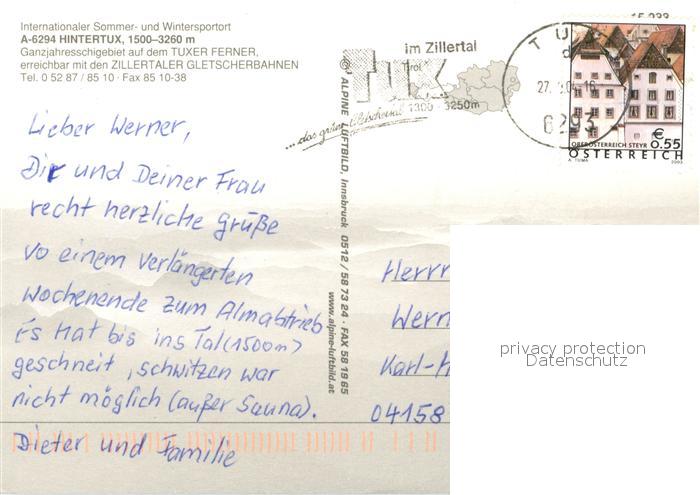 Internationaler Sommer- und Wintersportort
A-6294 HINTERTUX, 1500–3260 m
Ganzjahresschigebiet auf dem TUXER FERNER,
erreichbar mit den ZILLERTALER GLETSCHERBAHNEN
Tel. 0 52 87 / 85 10 · Fax 85 10-38
Lieber Werner,
Dir und Deiner Frau
recht herzliche Grüße
vo einem verlängerten
Wochenende zum Almabtrieb
Es hat bis ins Tal (1500m)
geschneit, schwitzen war
nicht möglich (außer Sauna).
Dieter und Familie
© ALPINE LUFTBILD, Innsbruck 0512 / 58 73 24 · FAX 58 19 65
www.alpine-luftbild.at
im Zillertal
Tirol
Tux
1300 - 3250m
TUX
6293
€
0.55
OBERÖSTERREICH STEYR
ÖSTERREICH
A. TUMA 2003
Herrn
Wern
Karl-
04158
privacy protection
Datenschutz